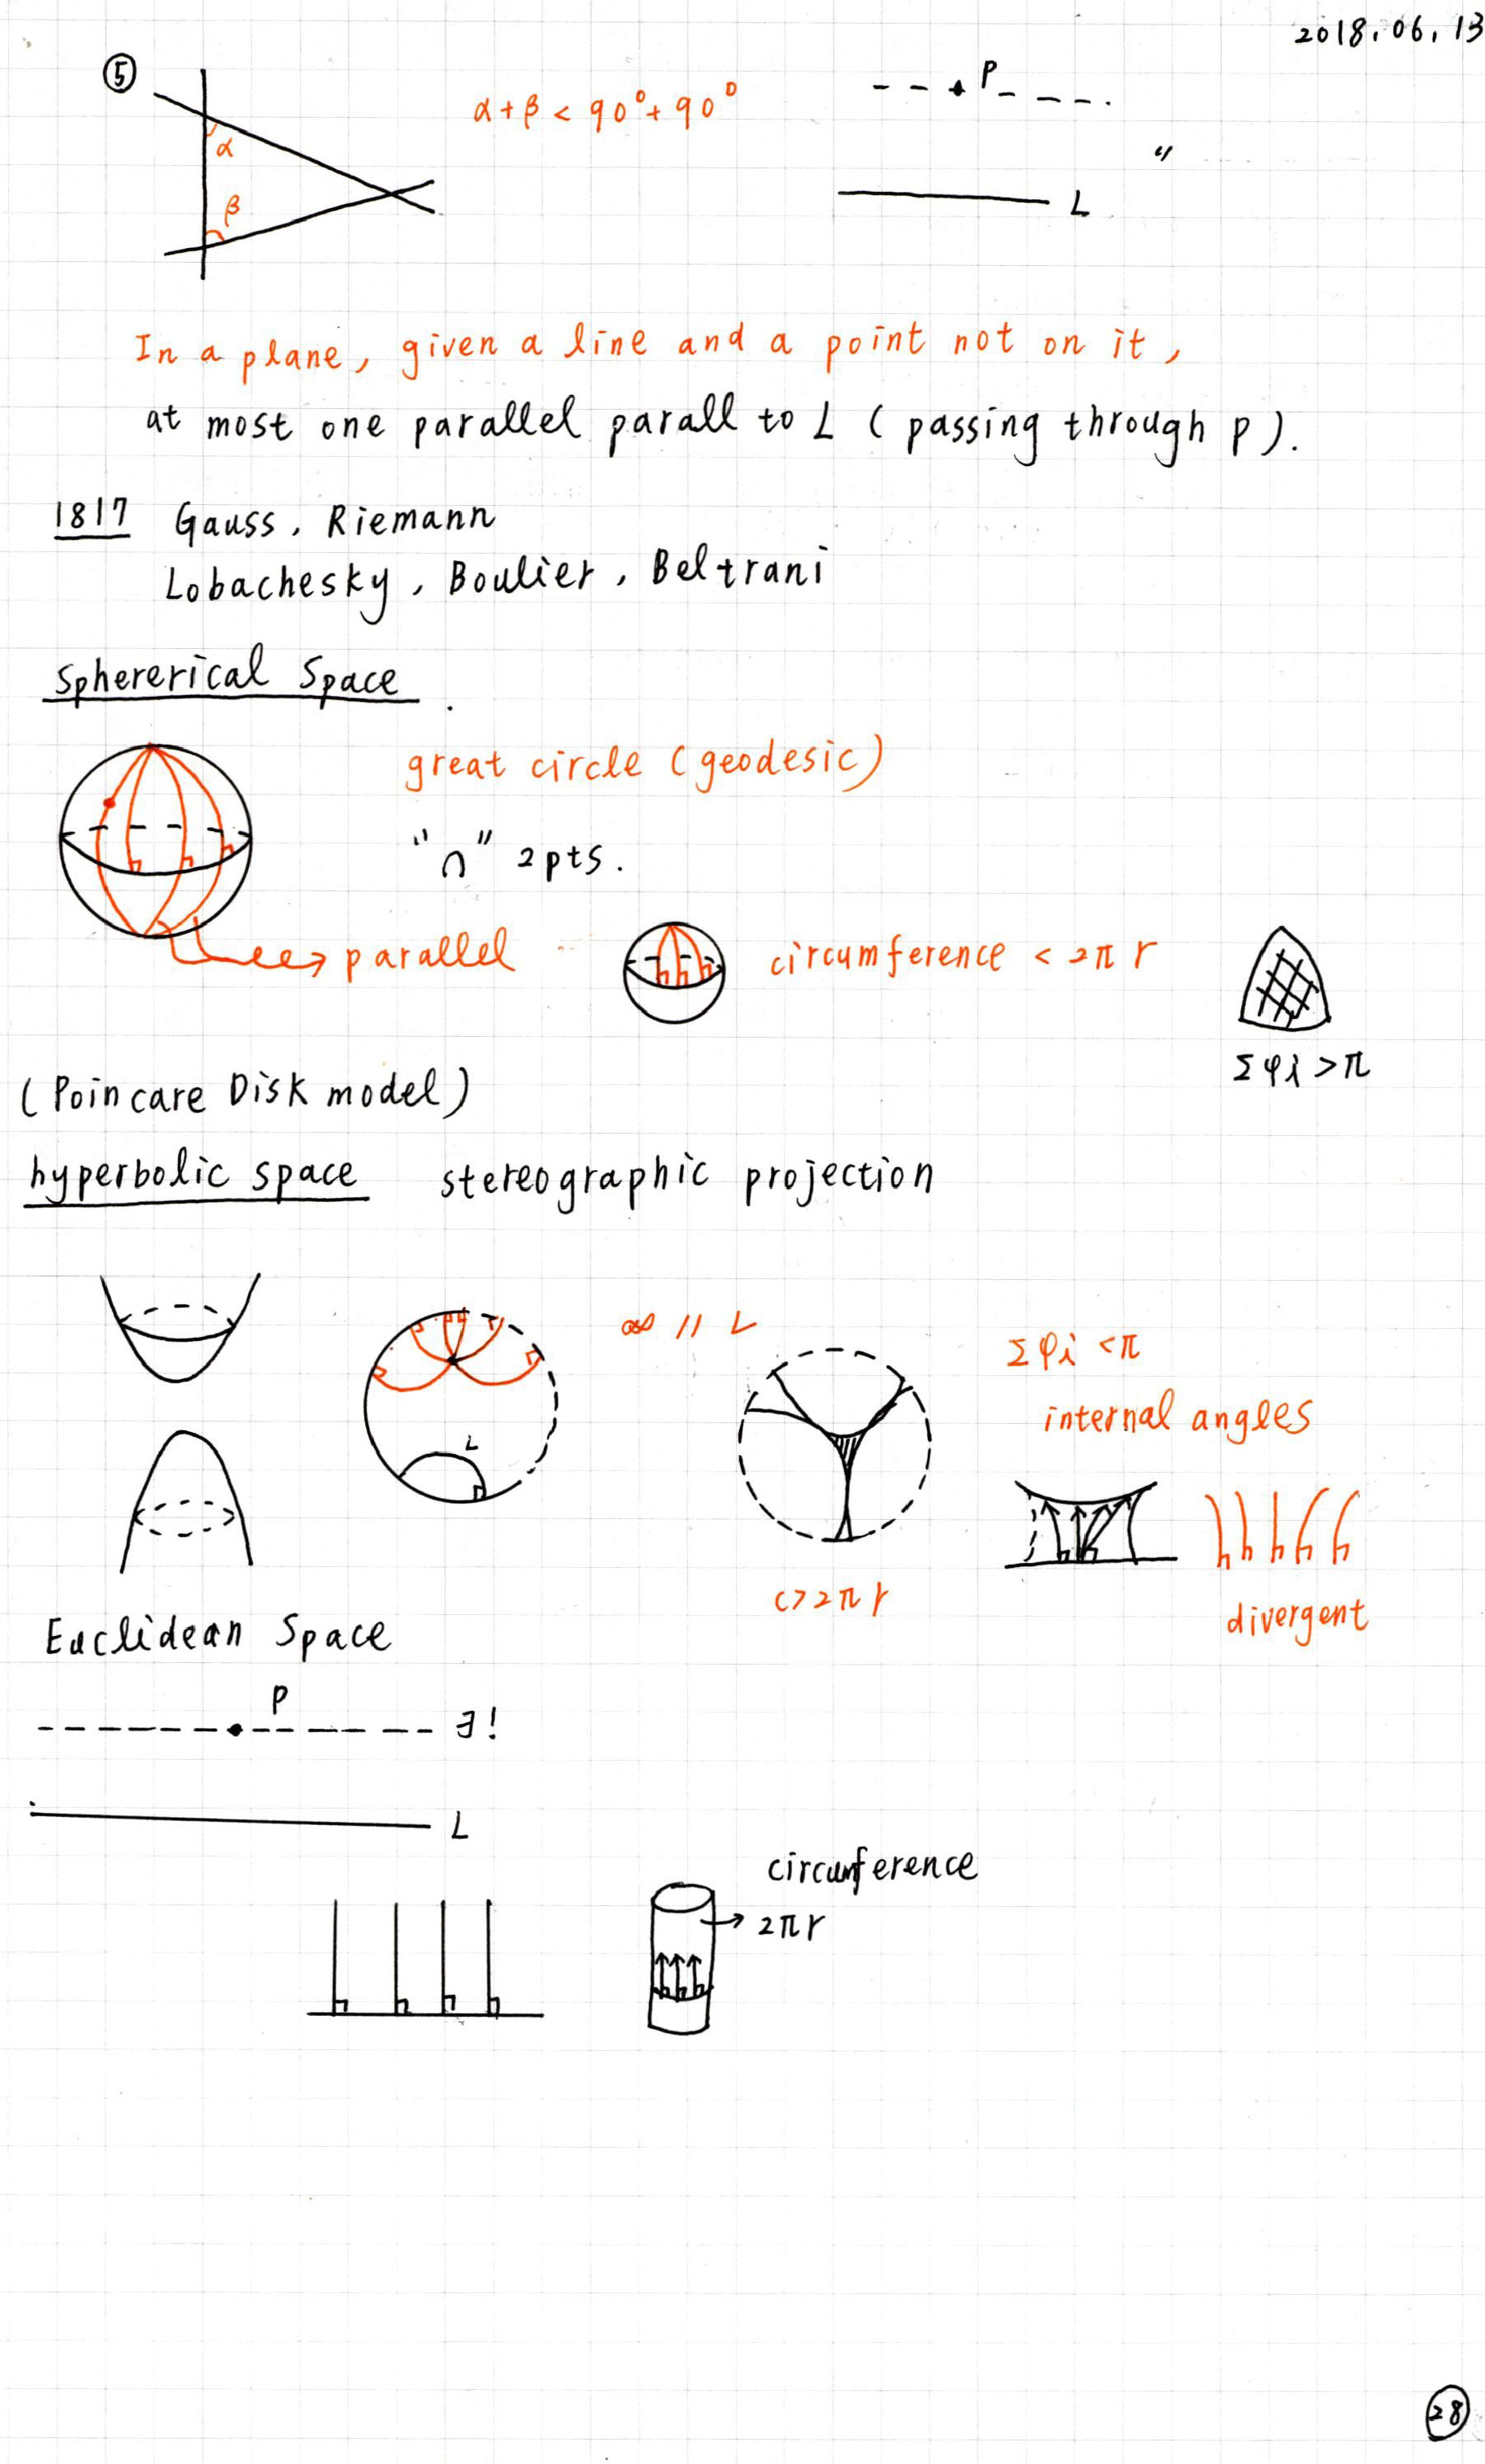 2018.06.13
⑤
α
β
α+β < 90°+90°
P
"
L
In a plane, given a line and a point not on it,
at most one parallel parall to L (passing through p).
1817 Gauss, Riemann
Lobachesky, Boulier, Beltrani
Sphererical Space.
great circle (geodesic)
"∩" 2pts.
parallel
circumference < 2πr
Σφi > π
(Poincare Disk model)
hyperbolic space stereographic projection
∞ // L
L
Σφi < π
internal angles
c > 2πr
divergent
Euclidean Space
P
∃!
L
circumference
2πr
28